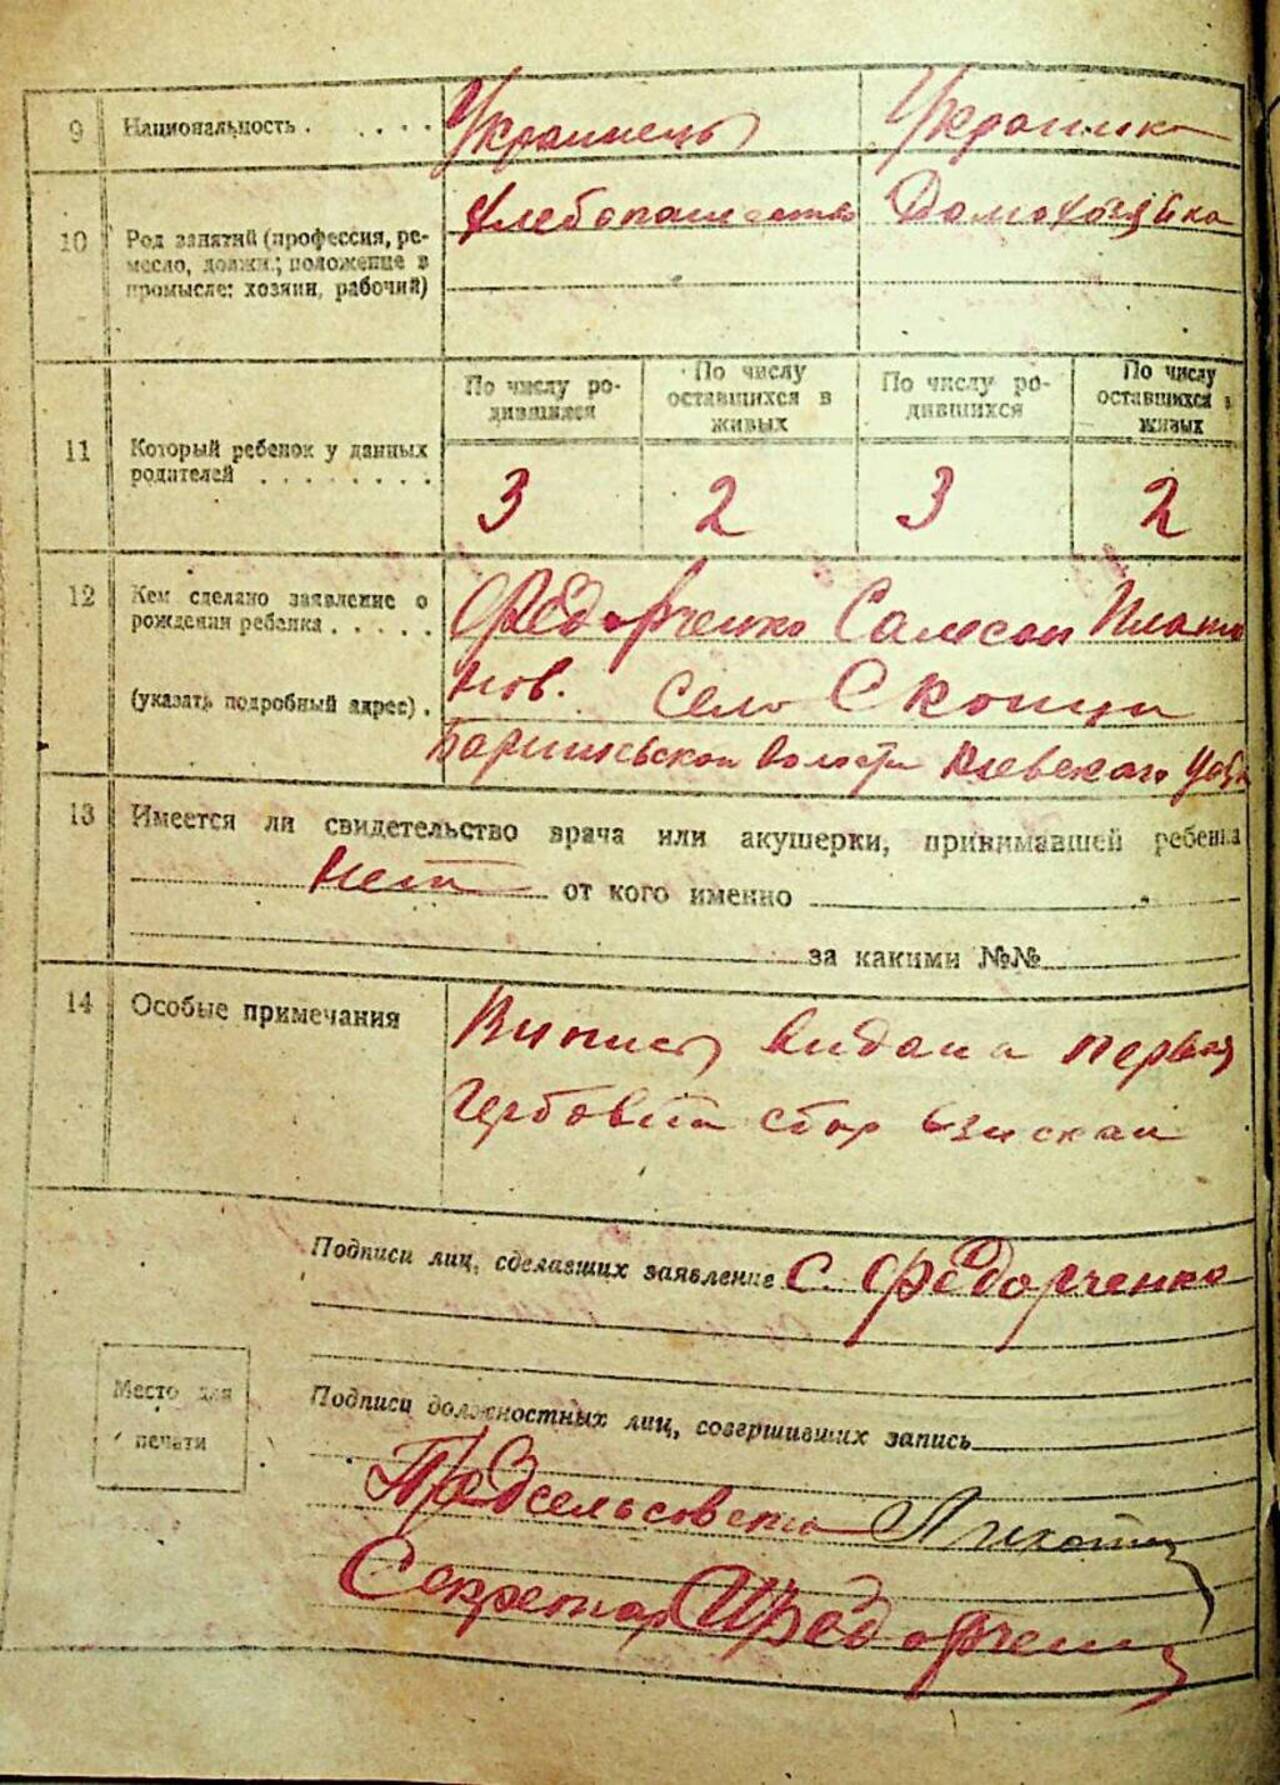 9 Национальность . . . . . Украинець Украинка
Хлебопашество Домохозяйка
10 Род занятий (профессия, ре-
месло, должн.; положение в
промысле: хозяин, рабочий)
По числу ро-
дившихся
По числу
оставшихся в
живых
По числу ро-
дившихся
По числу
оставшихся в
живых
11 Который ребенок у данных
родителей . . . . . . . .
3 2 3 2
12 Кем сделано заявление о
рождении ребенка . . . . .
Федорченко Самсон Плато
нов. село Скопци
(указать подробный адрес) .
Баришевской волости Киевского
13 Имеется ли свидетельство врача или акушерки, принимавшей ребенка
Нет от кого именно
за какими №№
14 Особые примечания
Випись видана первая
Гербовий сбор взискан
Подписи лиц, сделавших заявление С. Федорченко
Место для
печати
Подписи должностных лиц, совершивших запись
Предсельсовета
Секретар